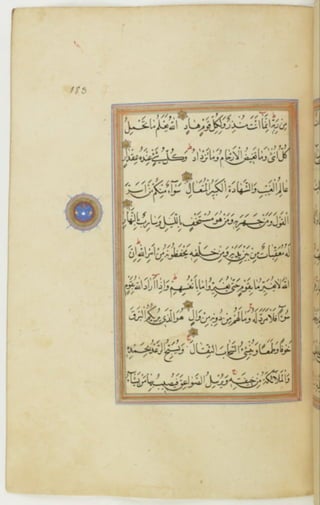 من ربه انما انت منذر ولكل قوم هاد الله يعلم ما تحمل
كل انثى وما تغيض الارحام وما تزداد وكل شيء عنده بمقدار
عالم الغيب والشهادة الكبير المتعال سواء منكم من اسر
القول ومن جهر به ومن هو مستخف بالليل وسارب بالنهار
له معقبات من بين يديه ومن خلفه يحفظونه من امر الله ان
الله لا يغير ما بقوم حتى يغيروا ما بانفسهم واذا اراد الله بقوم
سوءا فلا مرد له وما لهم من دونه من وال هو الذي يريكم البرق
خوفا وطمعا وينشئ السحاب الثقال ويسبح الرعد بحمده
والملائكة من خيفته ويرسل الصواعق فيصيب بها من يشاء